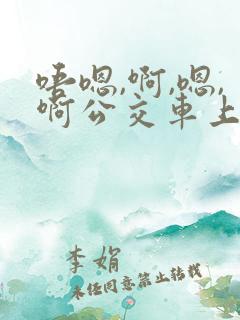 唔嗯,啊,嗯,
啊公交車上
李娟
未经同意禁止转载